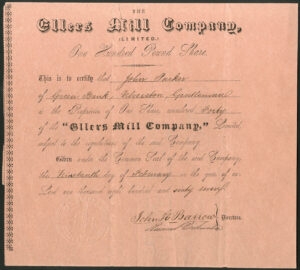 THE
Ellers Mill Company,
(LIMITED.)
One Hundred Pound Share.
This is to certify that John Parker
of Green Bank, Ulverston, Gentleman
is the Proprietor of One Share, numbered Forty
of the "Ellers Mill Company," Limited,
subject to the regulations of the said Company.
Given under the Common Seal of the said Company,
this Nineteenth day of February in the year of our
Lord one thousand eight hundred and sixty
John H. Barrow Directors.